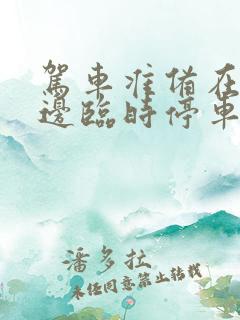 駕車准備在
邊臨時停車
潘多拉
未經同意禁止轉載